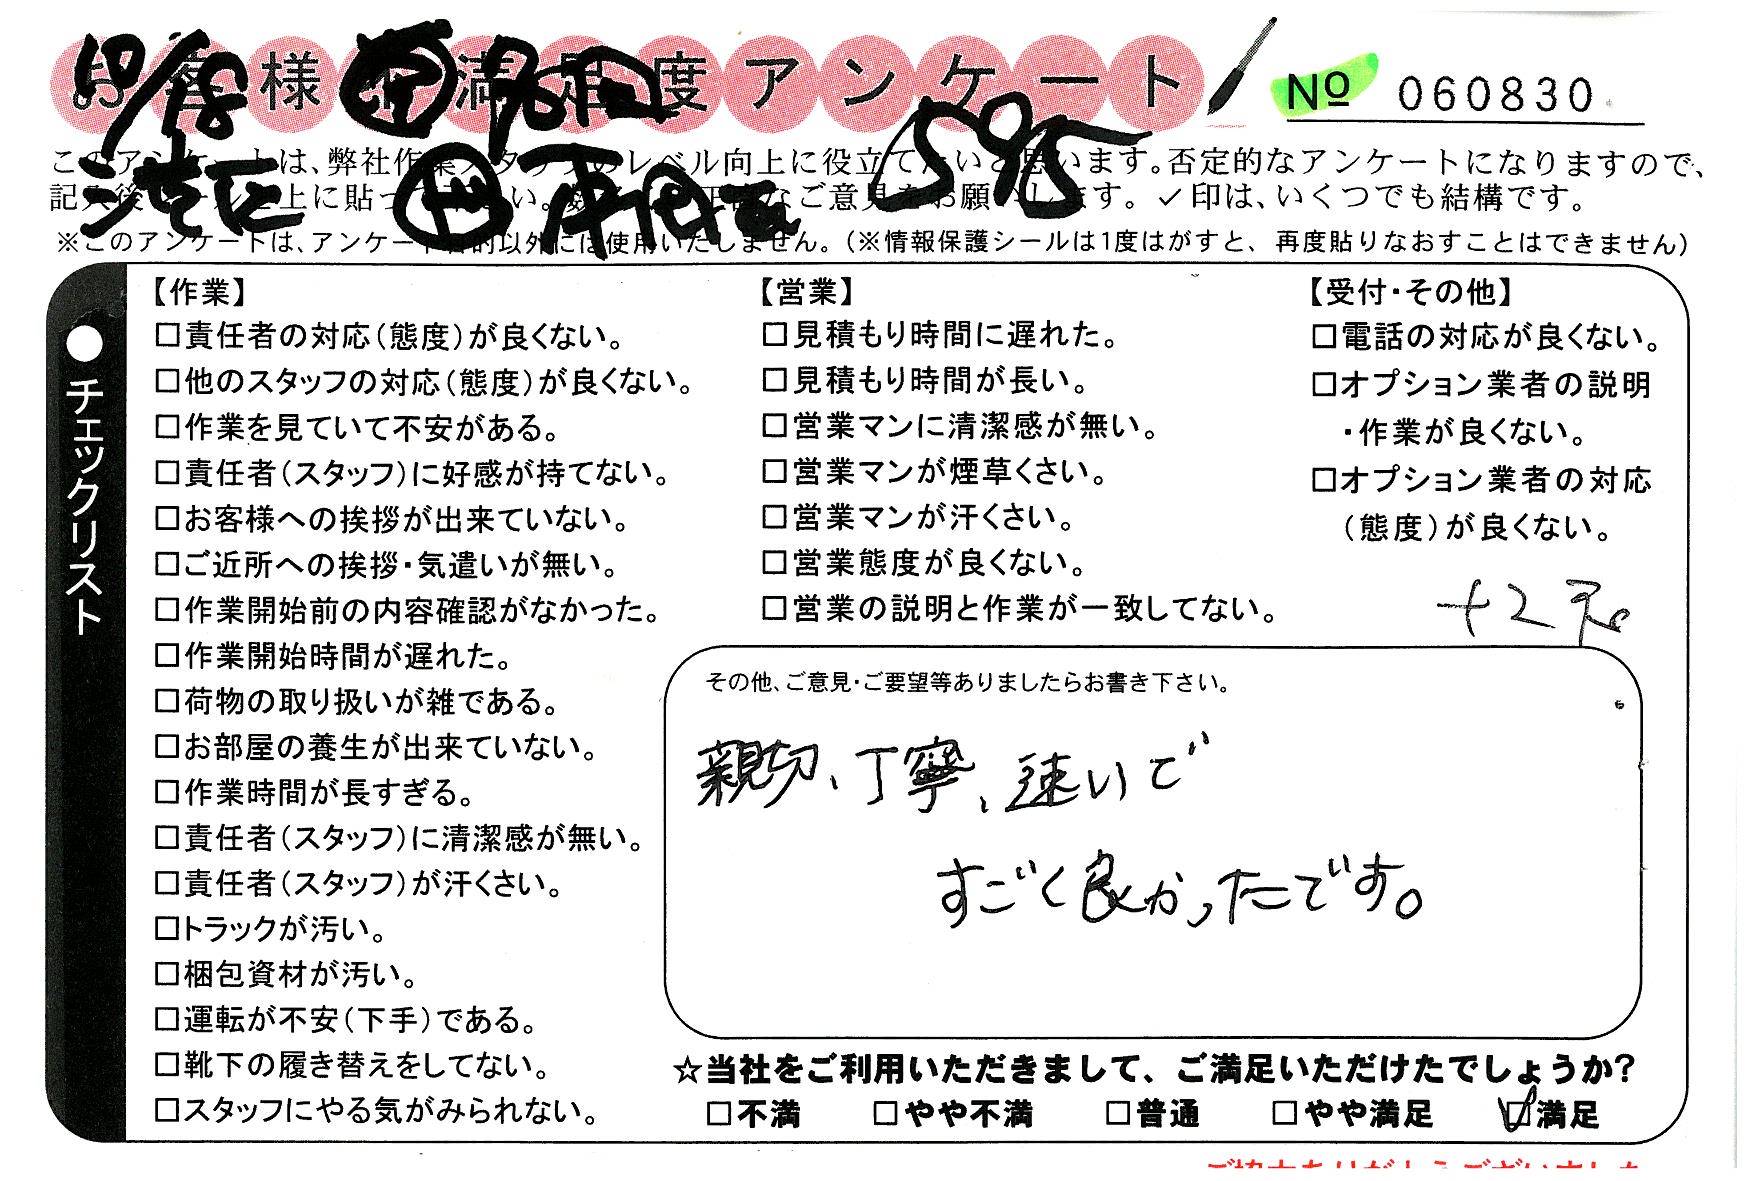 お客様不満足度アンケート
No 060830
10/18
595
港区
このアンケートは、弊社作業スタッフのレベル向上に役立てたいと思います。否定的なアンケートになりますので、
記入後シール 上に貼っ い。 なご意見をお願いします。✓印は、いくつでも結構です。
※このアンケートは、アンケート目的以外には使用いたしません。(※情報保護シールは1度はがすと、再度貼りなおすことはできません)
●チェックリスト
【作業】
□責任者の対応(態度)が良くない。
□他のスタッフの対応(態度)が良くない。
□作業を見ていて不安がある。
□責任者(スタッフ)に好感が持てない。
□お客様への挨拶が出来ていない。
□ご近所への挨拶・気遣いが無い。
□作業開始前の内容確認がなかった。
□作業開始時間が遅れた。
□荷物の取り扱いが雑である。
□お部屋の養生が出来ていない。
□作業時間が長すぎる。
□責任者(スタッフ)に清潔感が無い。
□責任者(スタッフ)が汗くさい。
□トラックが汚い。
□梱包資材が汚い。
□運転が不安(下手)である。
□靴下の履き替えをしてない。
□スタッフにやる気がみられない。
【営業】
□見積もり時間に遅れた。
□見積もり時間が長い。
□営業マンに清潔感が無い。
□営業マンが煙草くさい。
□営業マンが汗くさい。
□営業態度が良くない。
□営業の説明と作業が一致してない。
【受付・その他】
□電話の対応が良くない。
□オプション業者の説明
・作業が良くない。
□オプション業者の対応
(態度)が良くない。
その他、ご意見・ご要望等ありましたらお書き下さい。
親切、丁寧、速いで
すごく良かったです。
☆当社をご利用いただきまして、ご満足いただけたでしょうか?
□不満 □やや不満 □普通 □やや満足 ☑満足
ご協力ありがとうございました